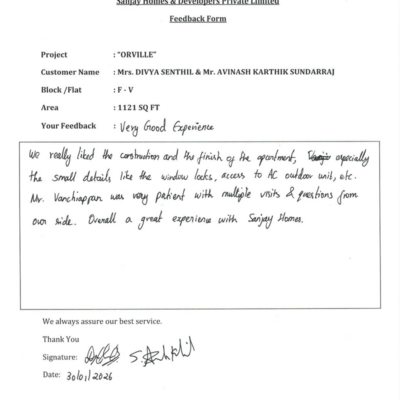 Sanjay Homes & Developers Private Limited
Feedback Form
Project : "ORVILLE"
Customer Name : Mrs. DIVYA SENTHIL & Mr. AVINASH KARTHIK SUNDARRAJ
Block /Flat : F - V
Area : 1121 SQ FT
Your Feedback : Very Good Experience
We really liked the construction and the finish of the apartment, especially
the small details like the window locks, access to AC outdoor unit, etc.
Mr. Vanchiappan was very patient with multiple visits & questions from
our side. Overall a great experience with Sanjay Homes.
We always assure our best service.
Thank You
Signature:
Date: 30/01/2026